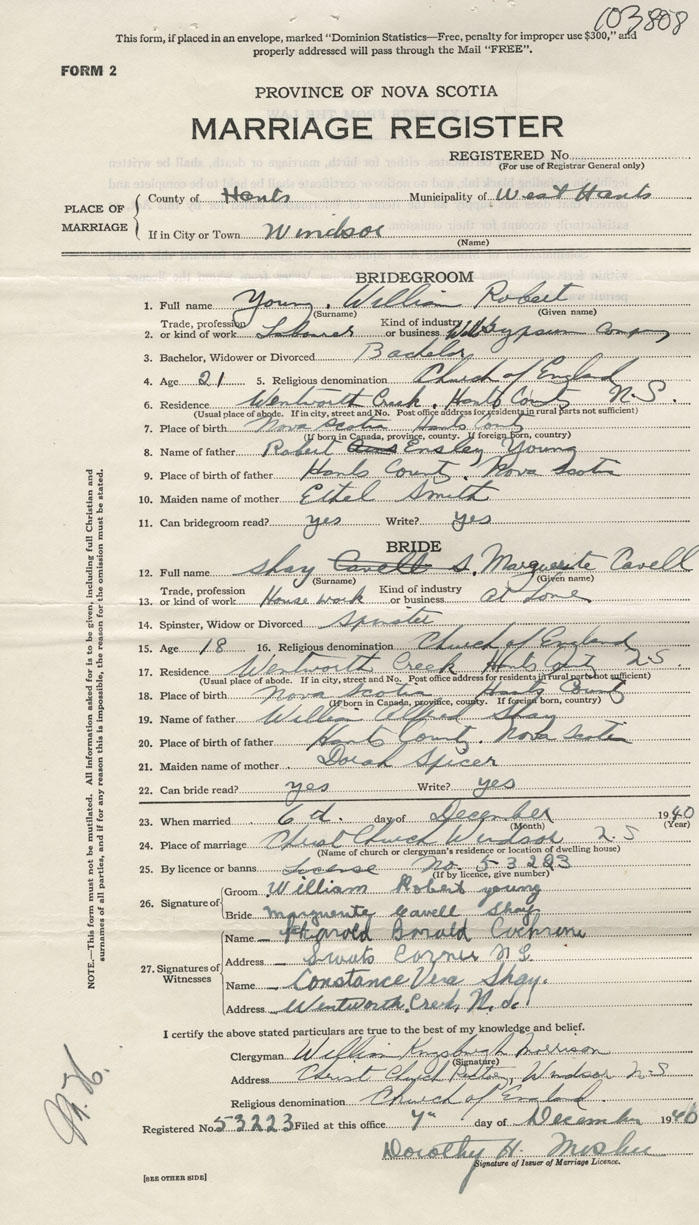 103808
This form, if placed in an envelope, marked "Dominion Statistics—Free, penalty for improper use $300," and
properly addressed will pass through the Mail "FREE".
FORM 2
PROVINCE OF NOVA SCOTIA
MARRIAGE REGISTER
REGISTERED No.
(For use of Registrar General only)
PLACE OF MARRIAGE
County of Hants Municipality of West Hants
If in City or Town Windsor
(Name)
BRIDEGROOM
1. Full name Young, William Robert
(Surname) (Given name)
2. Trade, profession or kind of work Labourer Kind of industry or business Gypsum Company
3. Bachelor, Widower or Divorced Bachelor
4. Age 21 5. Religious denomination Church of England
6. Residence Wentworth Creek, Hants County N.S.
(Usual place of abode. If in city, street and No. Post office address for residents in rural parts not sufficient)
7. Place of birth Nova Scotia Hants County
(If born in Canada, province, county. If foreign born, country)
8. Name of father Robert Ensley Young
9. Place of birth of father Hants County, Nova Scotia
10. Maiden name of mother Ethel Smith
11. Can bridegroom read? yes Write? yes
BRIDE
12. Full name Shay Cavell S. Marguerite Cavell
(Surname) (Given name)
13. Trade, profession or kind of work House work Kind of industry or business at home
14. Spinster, Widow or Divorced Spinster
15. Age 18 16. Religious denomination Church of England
17. Residence Wentworth Creek Hants Cnty N.S.
(Usual place of abode. If in city, street and No. Post office address for residents in rural parts not sufficient)
18. Place of birth Nova Scotia Hants County
(If born in Canada, province, county. If foreign born, country)
19. Name of father William Alfred Shay
20. Place of birth of father Hants County, Nova Scotia
21. Maiden name of mother Dorah Spicer
22. Can bride read? yes Write? yes
23. When married 6th day of December 1940
(Month) (Year)
24. Place of marriage Christ Church Windsor N.S
(Name of church or clergyman's residence or location of dwelling house)
25. By licence or banns License No. 53223
(If by licence, give number)
26. Signature of
Groom William Robert young
Bride Marguerite Cavell Shay
27. Signatures of Witnesses
Name Harold Donald Cochrane
Address Swets Corner N.S.
Name Constance Vera Shay.
Address Wentworth Creek, N.S.
I certify the above stated particulars are true to the best of my knowledge and belief.
Clergyman William Morrison
(Signature)
Address Christ Church Rectory, Windsor N.S
Religious denomination Church of England.
Registered No. 53223 Filed at this office 7th day of December 1940
Dorothy H. Mosher
Signature of Issuer of Marriage Licence.
[SEE OTHER SIDE]
NOTE.—This form must not be mutilated. All information asked for is to be given, including full Christian and
surnames of all parties, and if for any reason this is impossible, the reason for the omission must be stated.